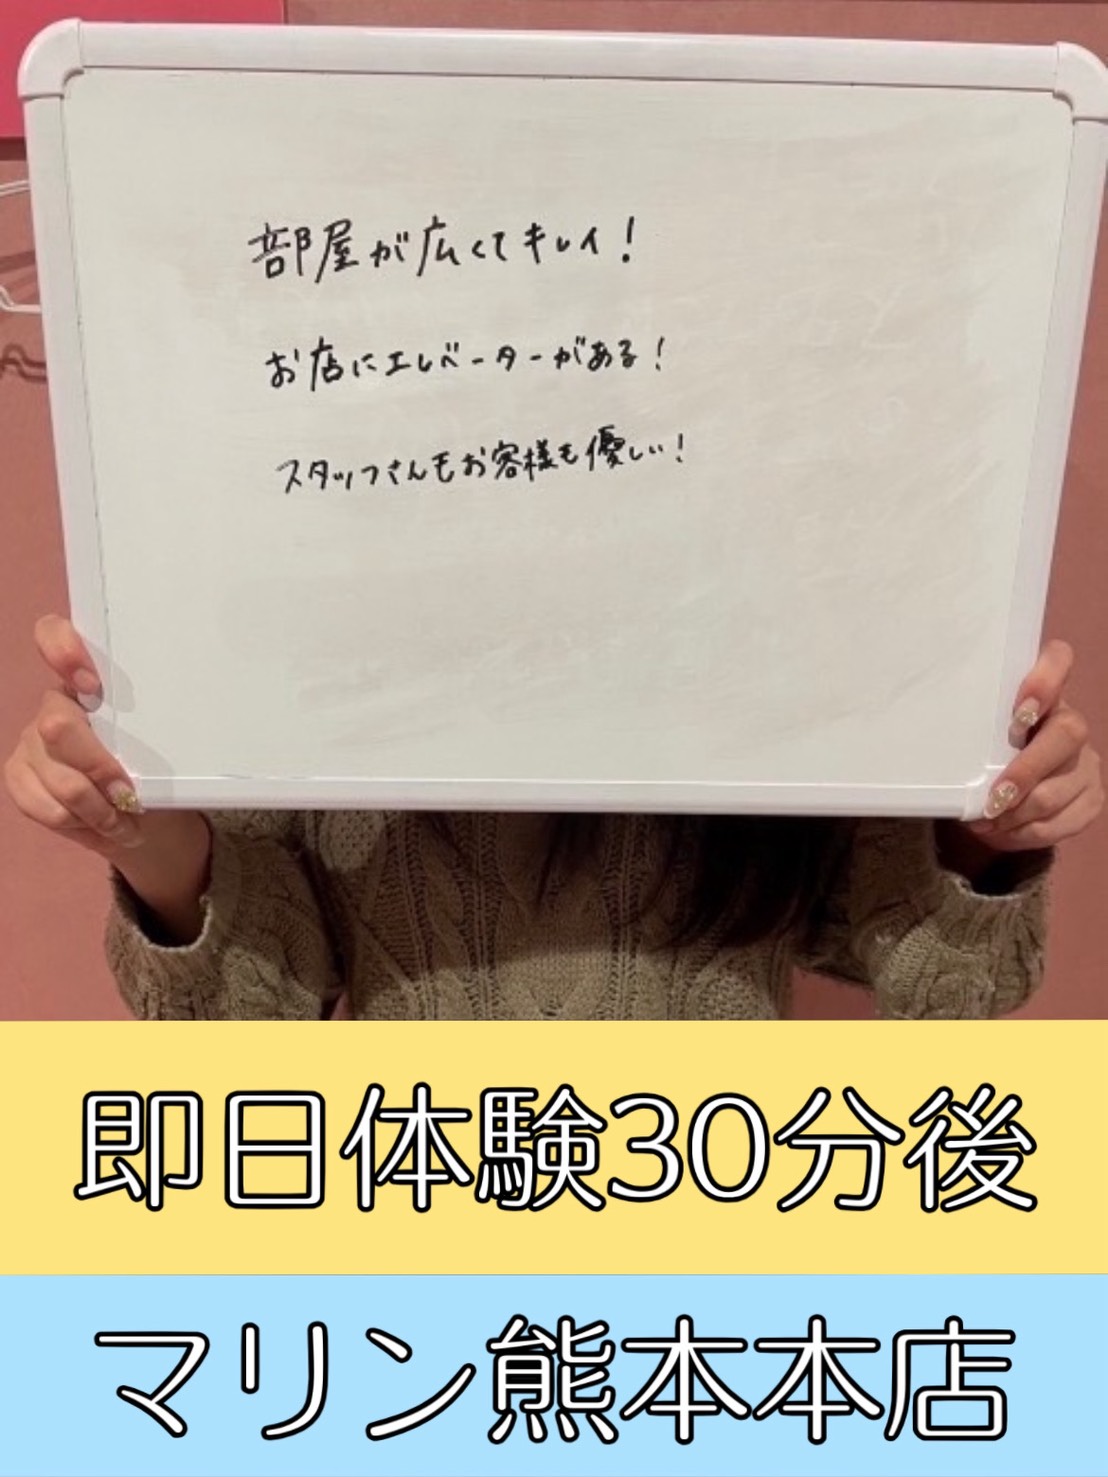 部屋が広くてキレイ!
お店にエレベーターがある!
スタッフさんもお客様も優しい!
即日体験30分後
マリン熊本本店